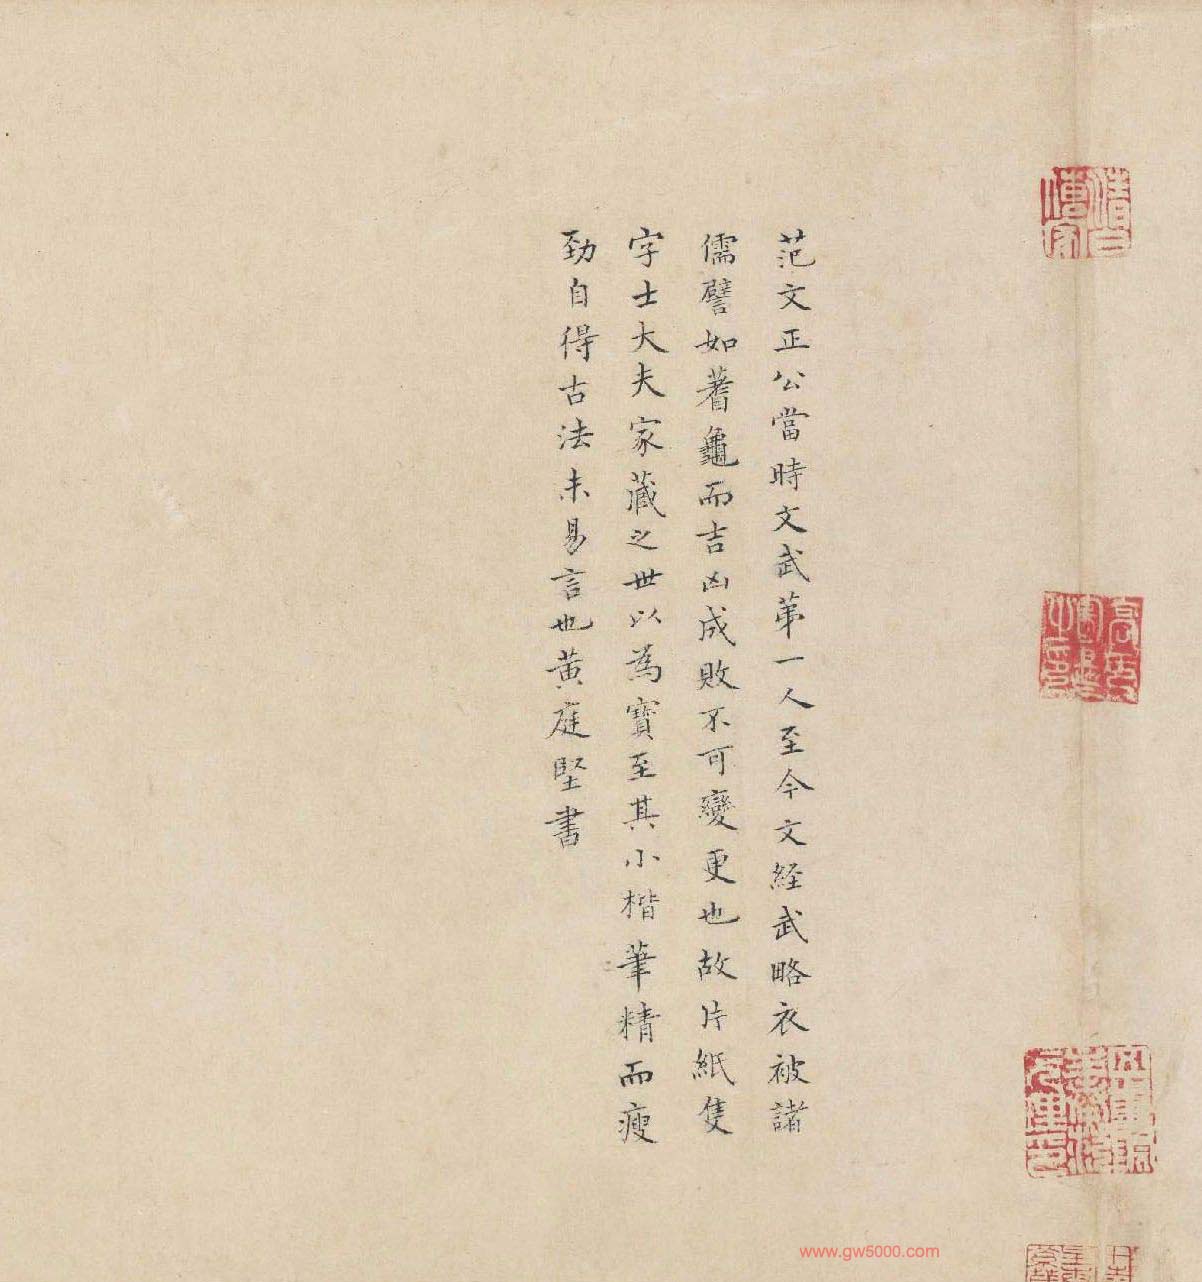 范文正公當時文武第一人至今文經武略衣被諸
儒譬如蓍龜而吉凶成敗不可變更也故片紙隻
字士大夫家藏之世以為寶至其小楷筆精而瘦
勁自得古法未易言也黃庭堅書
www.gw5000.com